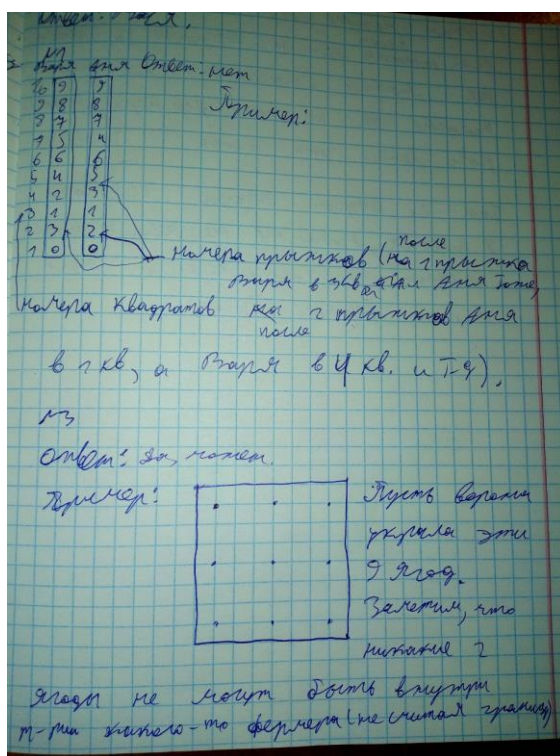 Ответ: Аня.
№1
Варя Аня Ответ: нет
10 9 9
9 8 8
8 7 7
7 5 4
6 6 6
5 4 5
4 2 3
3 1 1
2 3 2
1 0 0
Пример:
номера прыжков (на 1 прыжка
после
Варя в 3кв, Аня тоже,
номера квадратов на 2 прыжков Аня
после
в 1 кв, а Варя в 4 кв. и т-д).
№3
Ответ: да, может.
Пример:
Пусть ворона
украла эти
9 ягод.
Заметим, что
никакие 2
ягоды не могут быть внутри
т-рии какого-то фермера (не считая границ)